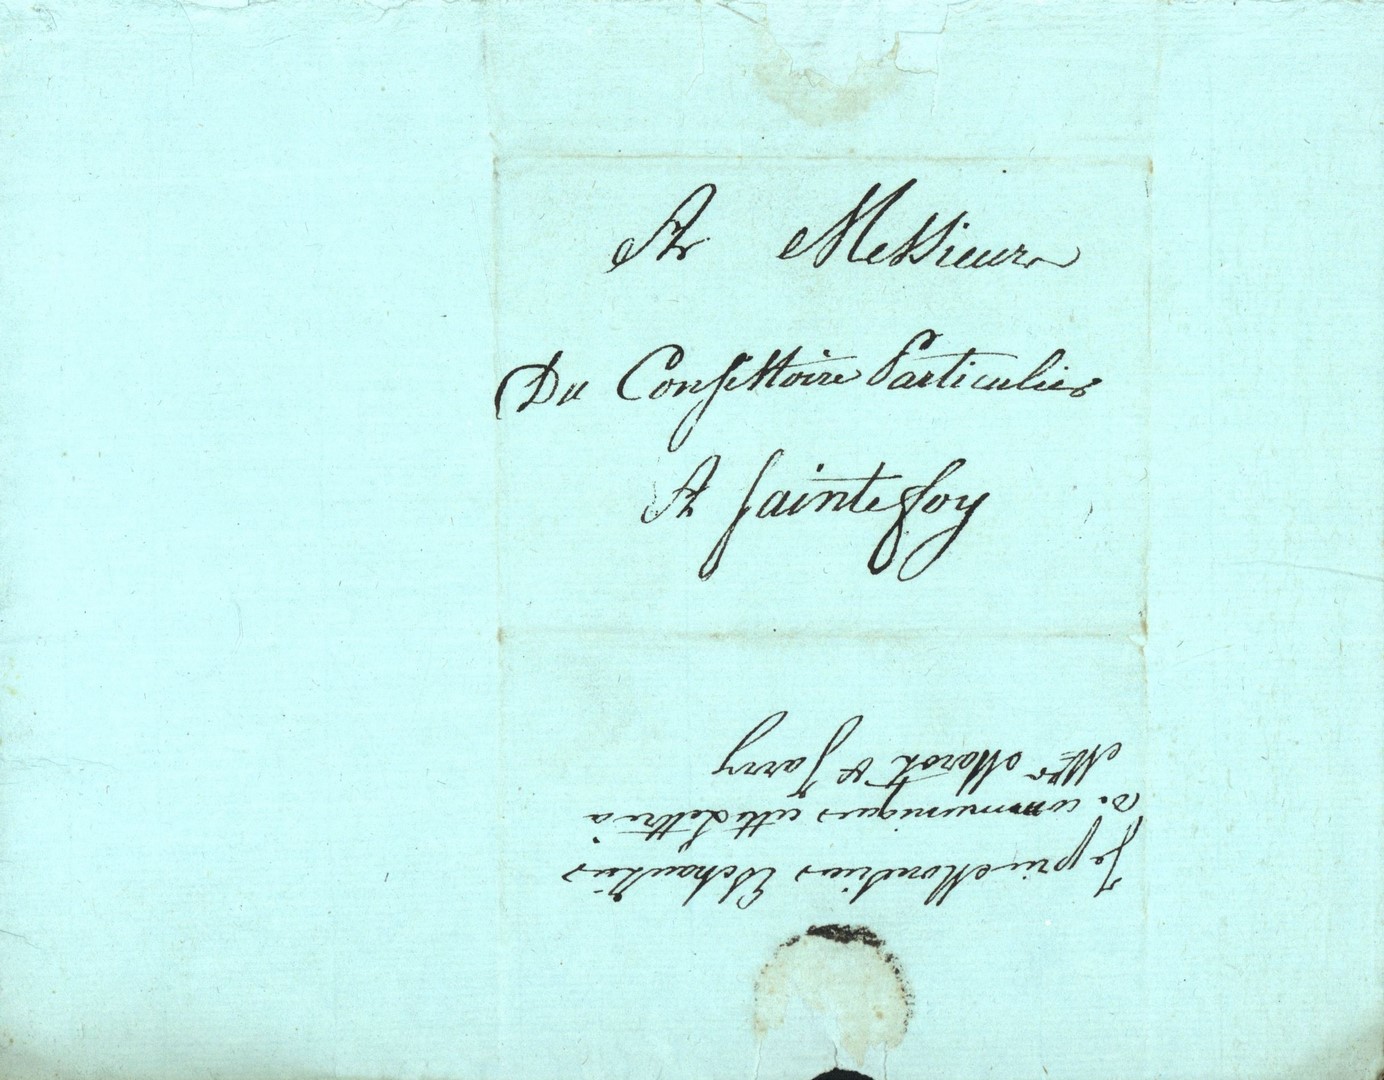 A Messieurs
Du Consistoire Particulier
A Sainte foy
Je prie Monsieur Eschauzier
de communiquer cette Lettre à
Mrs Marot & Jarry